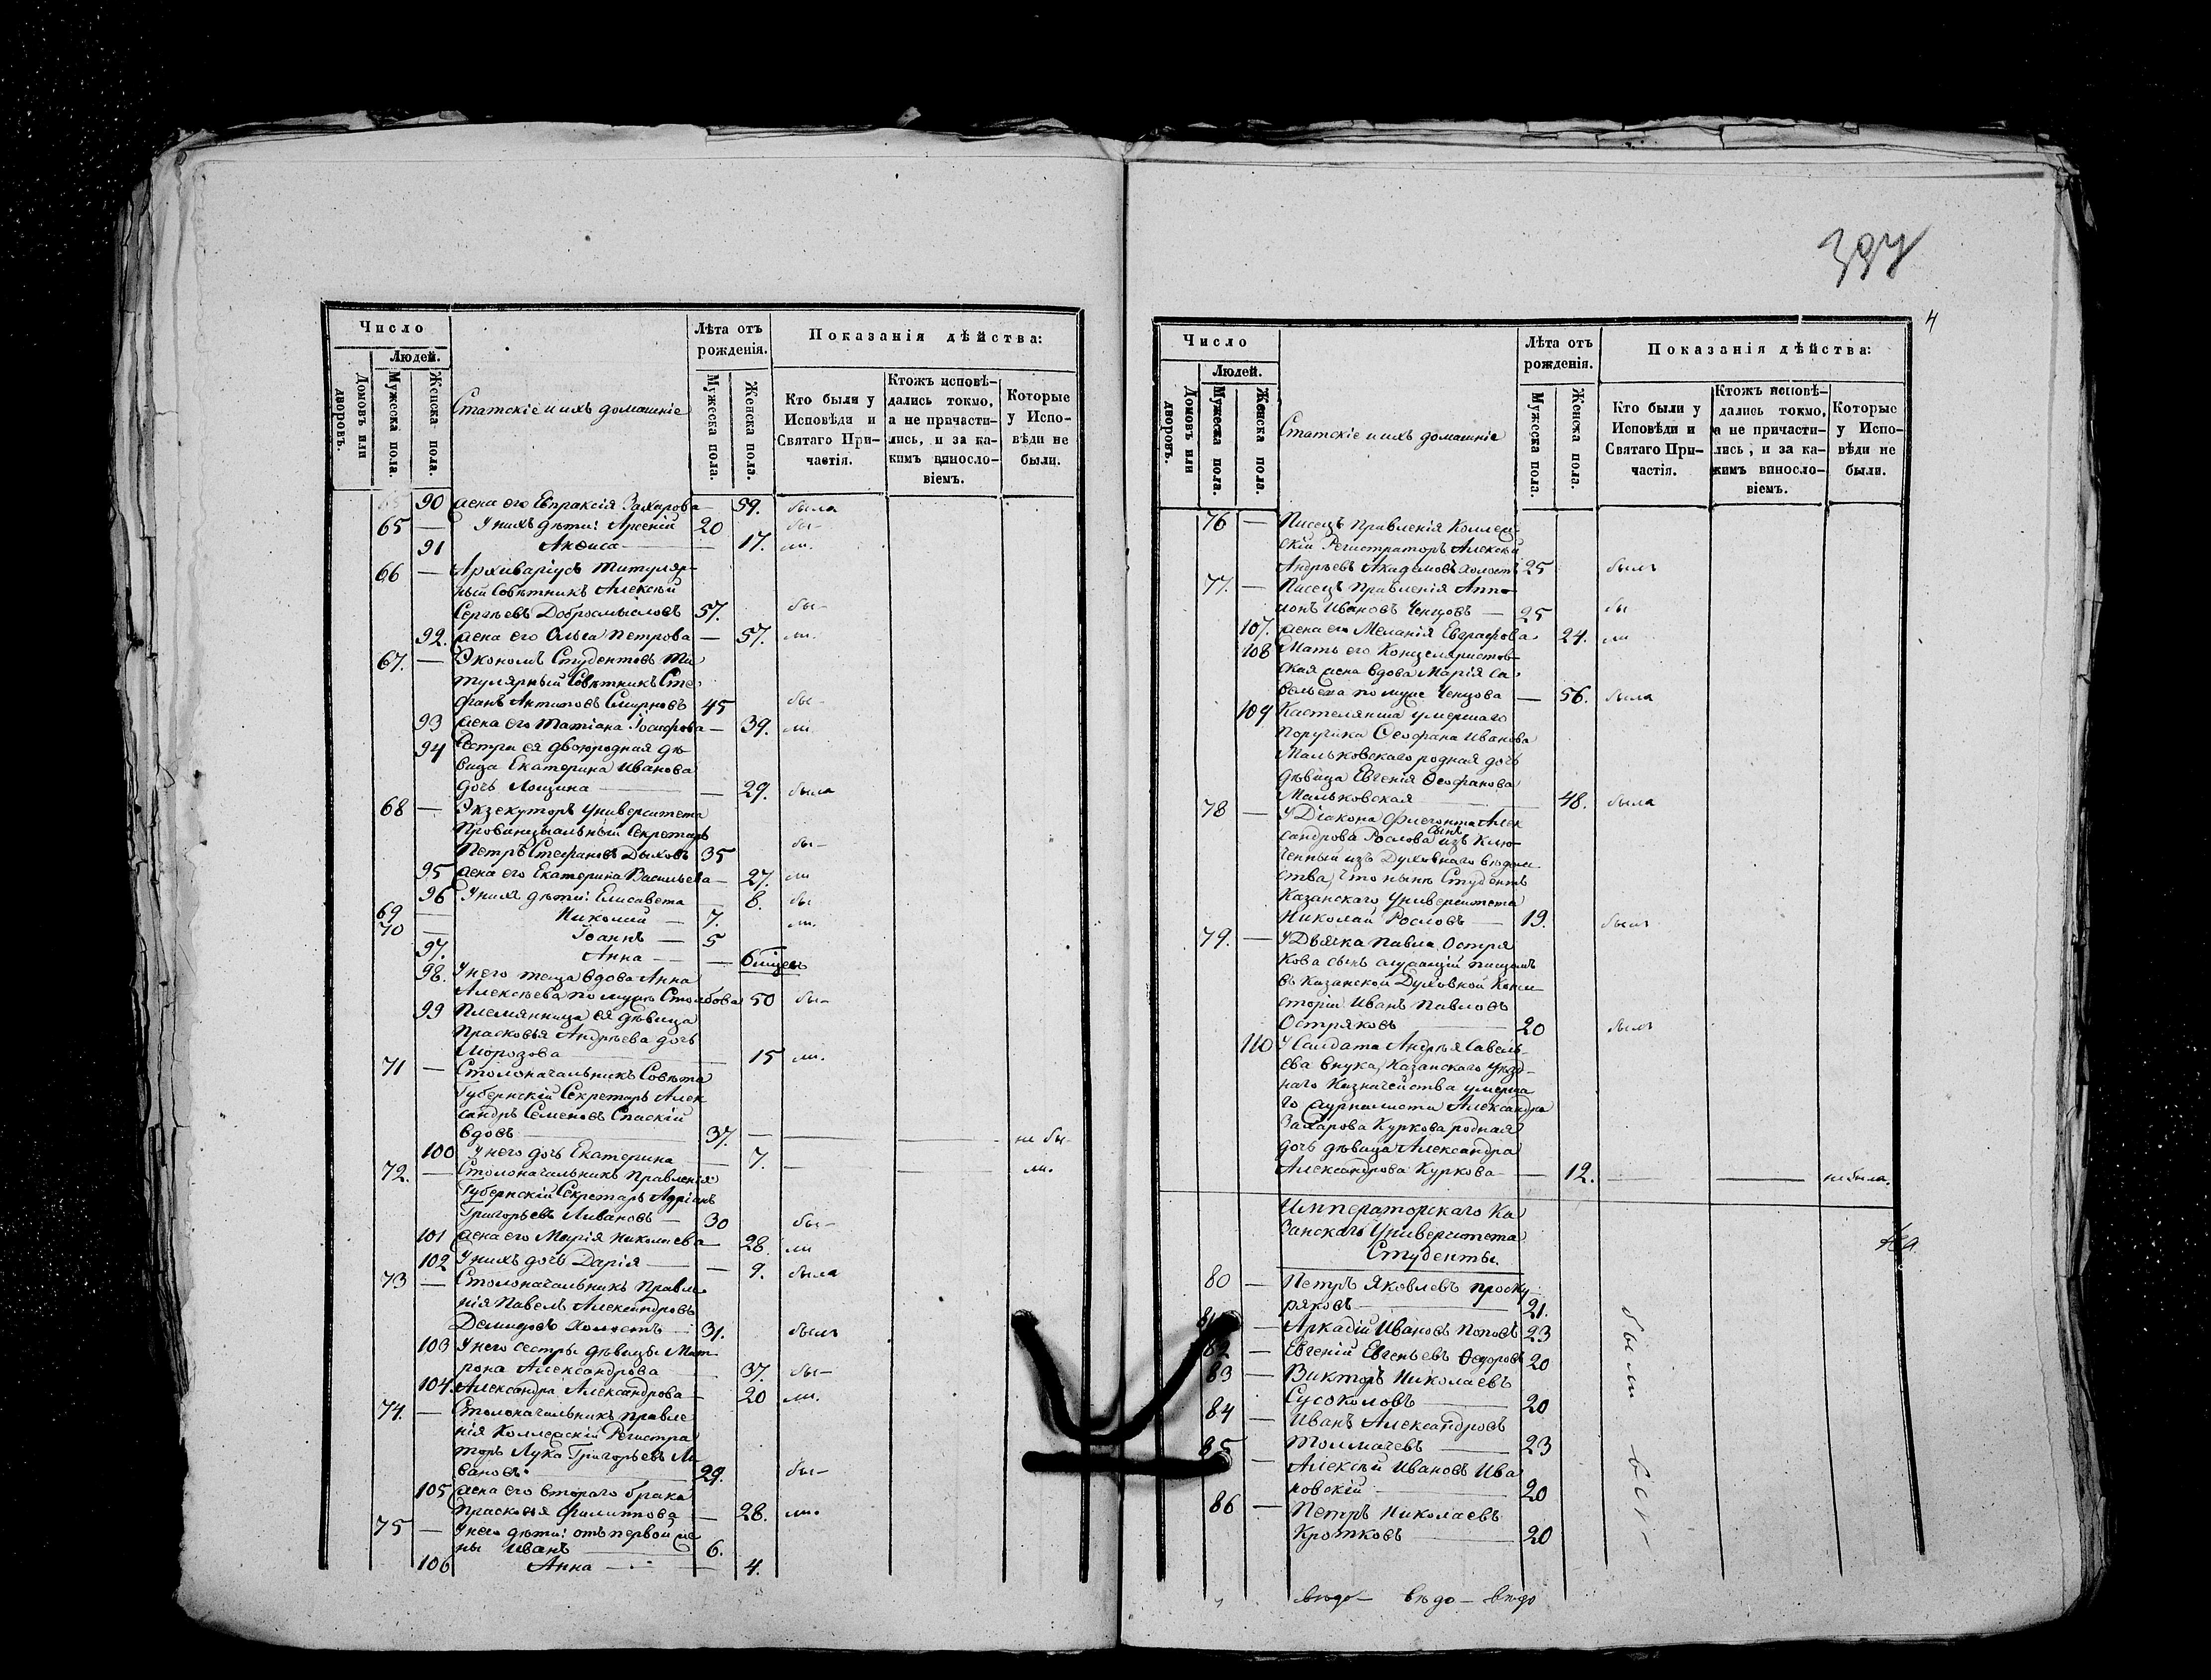 397
4
Число
Людей.
Домовъ или дворовъ.
Мужеска пола.
Женска пола.
Статскіе и ихъ домашніе
Лѣта отъ рожденія.
Мужеска пола
Женска пола.
Показанія дѣйства:
Кто были у Исповѣди и Святаго Причастія.
Ктожъ исповѣдались токмо, а не причастились, и за какимъ винословіемъ.
Которые у Исповѣди не были.
90 жена его Евпраксія Захарова — 59. была
65 — У нихъ дѣти: Арсеній 20 бы-
91 Анѳиса — 17. ли.
66 — Архиваріусъ Титуляр-
ный Совѣтникъ Алексѣй
Сергѣевъ Добросмысловъ 57. бы-
92. жена его Ольга Петрова — 57. ли.
67. — Экономъ Студентовъ Ти
тулярный Совѣтникъ Сте
фанъ Антиповъ Смирновъ 45 бы-
93 жена его Татіана Іосифова — 39. ли.
94 Сестра ея двоюродная дѣ
вица Екатерина Иванова
дочь Лощина — 29. была
68 — Экзекуторъ Университета
Провинціальный Секретарь
Петръ Стефановъ Дьяковъ 35 бы-
95 жена его Екатерина Васильева — 27. ли
96 У нихъ дѣти: Елисавета — 8. бы
69 — Николай — 7. ли.
70 — Іоаннъ — 5
97. Анна — 6 мѣсец
98. У него теща вдова Анна
Алексѣева по мужѣ Столбова 50 бы-
99 Племянница ея дѣвица
Прасковья Андрѣева дочь
Морозова — 15 ли.
71 — Столоначальникъ Совѣта
Губернскій Секретарь Алек
сандръ Семеновъ Спаскій
вдовъ 37. — не бы-
100 У него дочь Екатерина — 7. — ли.
72. — Столоначальникъ Правленія
Губернскій Секретарь Адріанъ
Григорьевъ Ливановъ — 30 бы-
101 жена его Марія Николаева — 28. ли
102 У нихъ дочь Дарія — 9. была
73 — Столоначальникъ Правле
нія Павелъ Александровъ
Демидовъ холостъ — 31. былъ
103 У него сестры дѣвицы Мат
рона Александрова 37. бы-
104. Александра Александрова — 20 ли.
74. — Столоначальникъ Правле
нія Коллежскій Регистра
торъ Лука Григорьевъ Ли
вановъ 29. бы-
105 жена его втораго брака
Прасковья Филиппова — 28. ли.
75 — У него дѣти: отъ первой же
ны Иванъ 6.
106 Анна — 4.
Число
Людей.
Домовъ или дворовъ.
Мужеска пола.
Женска пола.
Статскіе и ихъ домашніе
Лѣта отъ рожденія.
Мужеска пола.
Женска пола.
Показанія дѣйства:
Кто были у Исповѣди и Святаго Причастія.
Ктожъ исповѣдались токмо, а не причастились, и за какимъ винословіемъ.
Которые у Исповѣди не были.
76 — Писецъ Правленія Коллеж
скій Регистраторъ Алексѣй
Андрѣевъ Академовъ холостъ 25 былъ
77. — Писецъ Правленія Аппо
лонъ Ивановъ Ченцовъ — 25 бы
107. жена его Меланія Евграфова 24. ли
108 Мать его Канцеляристов-
ская жена вдова Марія Са
вельева по мужѣ Ченцова — 56. была
109 Кастелянша умершаго
Поручика Ѳеофана Иванова
Мальковскаго родная дочь
дѣвица Евгенія Ѳеофанова
Мальковская — 48. была
78 — У Діакона Флегонта Алек
сандрова Рослова сынъ изъ Клю
ченный изъ Духовнаго вѣдом-
ства, что нынѣ Студентъ
Казанскаго Университета
Николай Рословъ — 19. былъ
79. — У Дьячка Павла Остря
кова сынъ служащій писцомъ
въ Казанской Духовной Конси
сторіи Иванъ Павловъ
Остряковъ 20 былъ
110 У Салдата Андрѣя Савель-
ева внука, Казанскаго Уѣзд-
наго Казначейства умерша
го журналиста Александра
Захарова Куркова родная
дочь дѣвица Александра
Александрова Куркова — 12. — не была.
Императорскаго Ка
занскаго Университета
Студенты.
80 — Петръ Яковлевъ Проску
ряковъ 21.
81 — Аркадій Ивановъ Поповъ 23
82 — Евгеній Евгеньевъ Ѳедоровъ 20
83 — Викторъ Николаевъ
Сусоколовъ 20
84 — Иванъ Александровъ
Толмачевъ 23
85 — Алексѣй Ивановъ Ива
новскій 20
86 — Петръ Николаевъ
Кротковъ 20
были всѣ
вѣдо- вѣдо- вѣдо